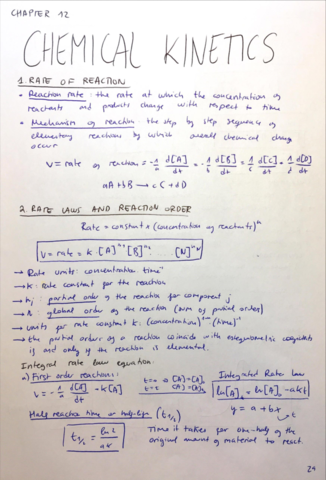 CHAPTER 12
CHEMICAL KINETICS
1. RATE OF REACTION
• Reaction rate: the rate at which the concentration of
reactants and products change with respect to time
• Mechanism of reaction: the step by step sequence of
elementary reactions by which overall chemical change
occur
V = rate of reaction = -1/a d[A]/dt = -1/b d[B]/dt = 1/c d[C]/dt = 1/d d[D]/dt
aA + bB → cC + dD
2. RATE LAWS AND REACTION ORDER
Rate = constant × (concentration of reactants)ⁿ
V = rate = k · [A]ⁿ¹ [B]ⁿ² ... [N]
→ Rate units: concentration time⁻¹
→ K: rate constant for the reaction
→ nj: partial order of the reaction for component j
→ n: global order of the reaction (sum of partial orders)
→ units for rate constant k: (concentration)¹⁻ⁿ (time)⁻¹
→ the partial order of a reaction coincide with estequiometric
is and only if the reaction is elemental.
Integral rate law equation:
a) First order reactions: t=0 [A]=[A]₀ Integrated Rate law
V = -1/a d[A]/dt = k[A] t=t [A]=[A] ln[A] = ln[A]₀ - akt
y = a + bx
Half reaction time or half-life (t₁/₂)
t₁/₂ = ln2/ak Time it takes for one-half of the
original amount of material to react.
24